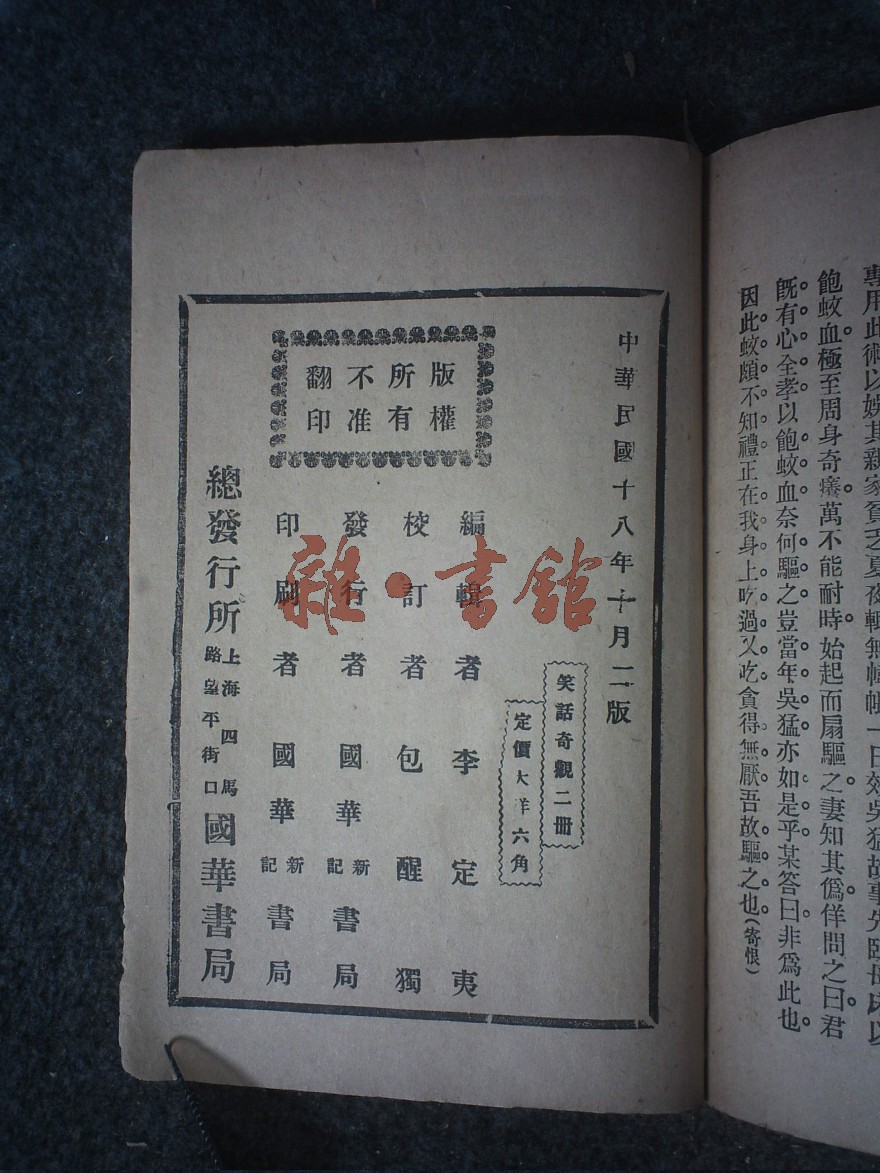 專用此術以娛其親家貧乏夏夜輒無幃帳一日效吳猛故事先臥母床以
飽蚊血極至周身奇癢萬不能耐時始起而扇驅之妻知其僞佯問之曰君
既有心全孝以飽蚊血奈何驅之豈當年吳猛亦如是乎某答曰非爲此也
因此蚊頗不知禮正在我身上吃過又吃貪得無厭吾故驅之也(寄恨)
中華民國十八年十月二版
笑話奇觀二册
定價大洋六角
版權
所有
不准
翻印
編輯者李定夷
校訂者包醒獨
發行者國華新記書局
印刷者國華新記書局
總發行所上海四馬路望平街口國華書局
雜·書館